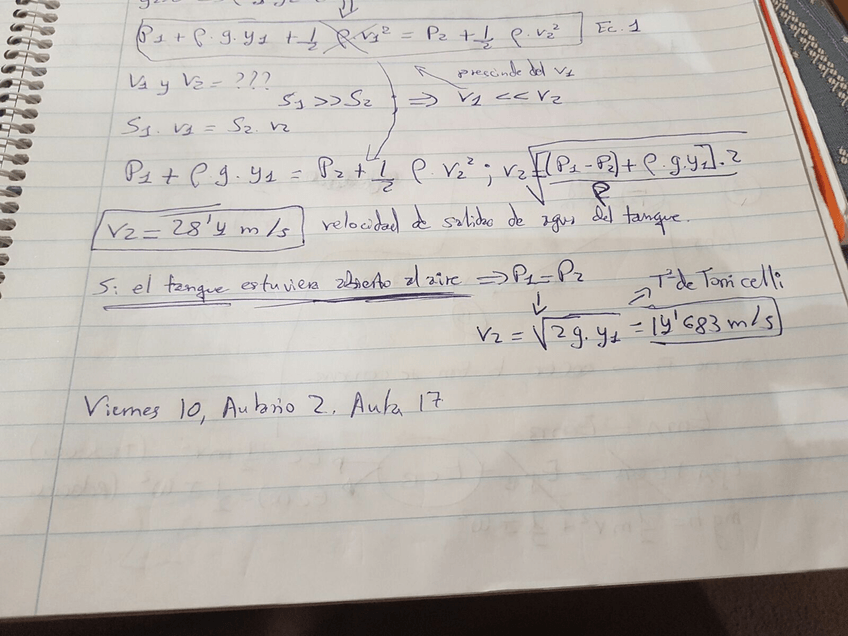 P1 + ρ.g.y1 + 1/2 ρ.v1² = P2 + 1/2 ρ.v2² Ec.1
prescinde del v1
v1 y v2 = ???
S1 >> S2 ⇒ v1 << v2
S1.v1 = S2.v2
P1 + ρ.g.y1 = P2 + 1/2 ρ.v2² ; v2 = √([(P1-P2) + ρ.g.y1].2/ρ)
v2 = 28'4 m/s velocidad de salida de agua del tanque.
Si el tanque estuviera abierto al aire ⇒ P1 = P2
Tª de Torricelli
v2 = √(2g.y1) = 14'683 m/s
Viernes 10, Aulario 2. Aula 17